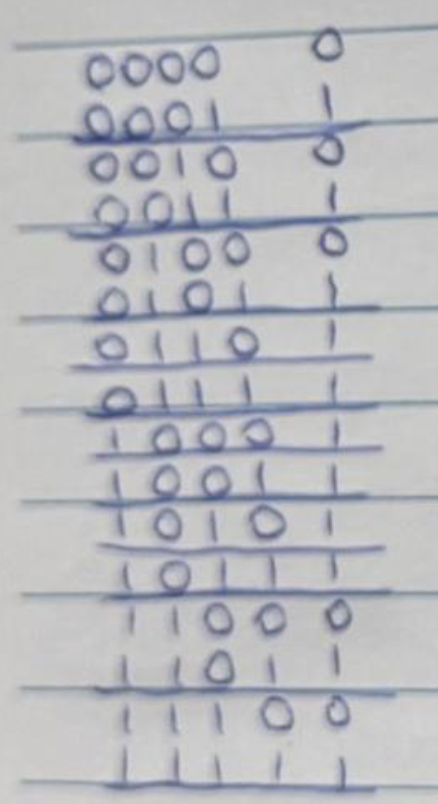 0000 0
0001 1
0010 0
0011 1
0100 0
0101 1
0110 1
0111 1
1000 1
1001 1
1010 1
1011 1
1100 0
1101 1
1110 0
1111 1